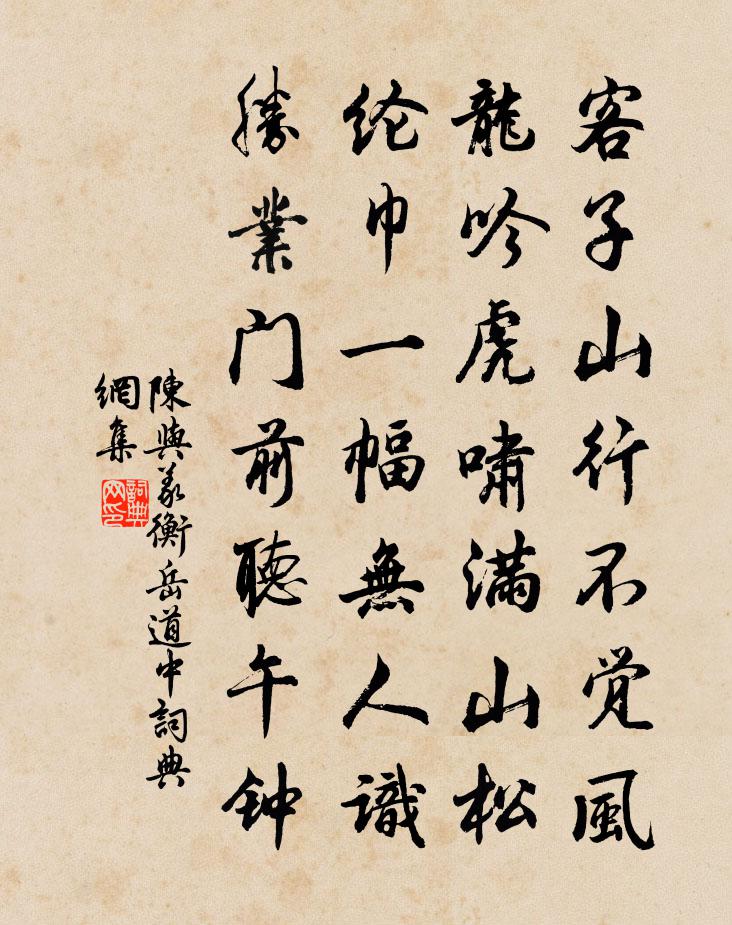 客子山行不觉風
龍吟虎嘯满山松
纶巾一幅無人識
勝業门前聴午钟
陳與義衡岳道中詞典
網集
詞典
网印